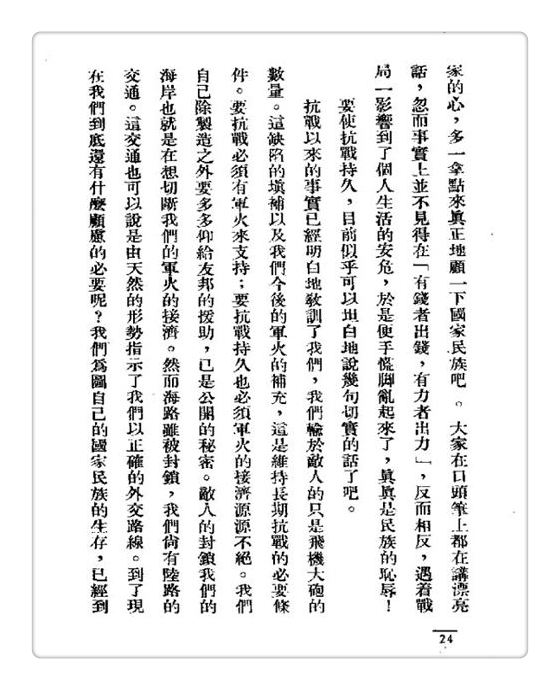 家的心，多一拿點來眞正地顧一下國家民族吧 。大家在口頭筆上都在講漂亮
話，忽而事實上並不見得在「有錢者出錢，有力者出力」，反而相反，遇着戰
局一影響到了個人生活的安危，於是便手慌脚亂起來了，眞眞是民族的恥辱！
要使抗戰持久，目前似乎可以坦白地說幾句切實的話了吧。
抗戰以來的事實已經明白地敎訓了我們，我們輸於敵人的只是飛機大砲的
數量。這缺陷的塡補以及我們今後的軍火的補充，這是維持長期抗戰的必要條
件。要抗戰必須有軍火來支持；要抗戰持久也必須軍火的接濟源源不絕。我們
自己除製造之外要多多仰給友邦的援助，已是公開的秘密。敵人的封鎖我們的
海岸也就是在想切斷我們的軍火的接濟。然而海路雖被封鎖，我們尙有陸路的
交通。這交通也可以說是由天然的形勢指示了我們以正確的外交路線。到了現
在我們到底還有什麼顧慮的必要呢？我們爲圖自己的國家民族的生存，已經到
24